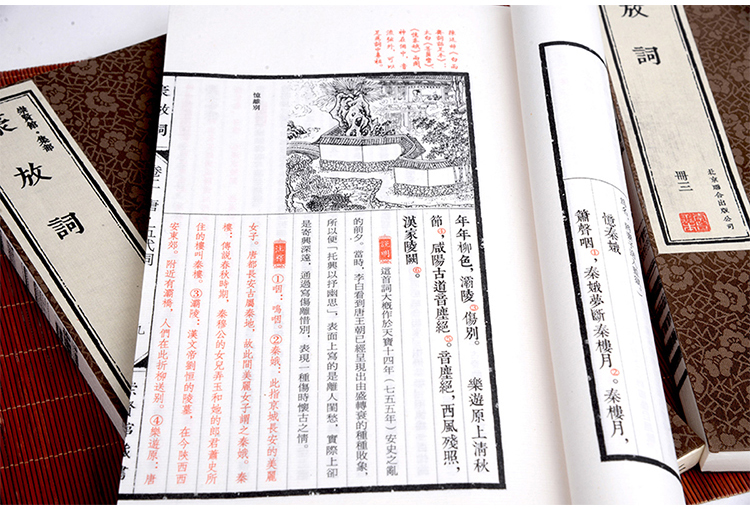 憶秦娥
簫聲咽①，秦娥夢斷秦樓月②。秦樓月，
年年柳色，灞陵③傷別。　樂遊原上清秋
節④，咸陽古道音塵絕⑤。音塵絕，西風殘照，
漢家陵闕⑥。
説明 這首詞大概作於天寶十四年（七五五年）安史之亂
的前夕。當時，李白看到唐王朝已經呈現出由盛轉衰的種種敗象，
所以便「托興以抒幽思」，表面上寫的是離人閨愁，實際上卻
是寄興深遠，通過寫傷離惜別，表現一種傷時懷古之情。
註釋 ①咽：嗚咽。②秦娥：此指京城長安的美麗
女子。唐都長安古屬秦地，故此間美麗女子謂之秦娥。秦
樓：傳說春秋時期，秦穆公的女兒弄玉和她的郎君蕭史所
住的樓叫秦樓。③灞陵：漢文帝劉恒的陵墓，在今陝西西
安東郊。附近有灞橋，人們在此折柳送別。④樂遊原：唐
憶離別
豪放詞
卷二 唐 五代詞
九
放詞
冊三
北京聯合出版公司
放詞